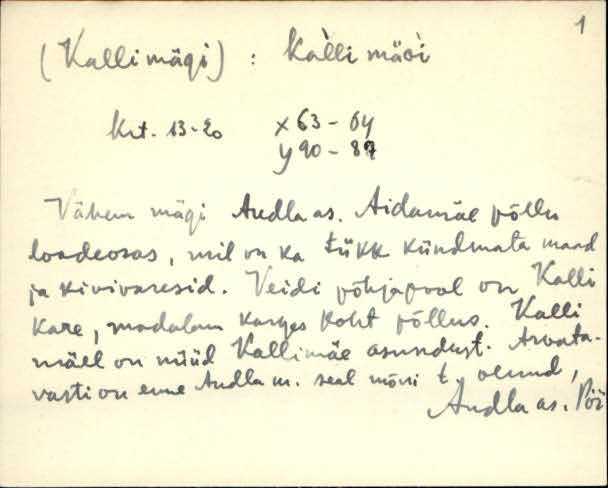 1
(Kallimägi) : Kàllimäǥi
krt. 13-20 x 63 - 64
y 90 - 89
Vähem mägi Audla as. Aidamäe põllu
loodeosas, mil on ka tükk kündmata maad
ja kivivaresid. Veidi põhjapool on Kalli
kare, madalam karges koht põllus. Kalli
mäel on nüüd Kallimäe asundust. Arvata-
vasti on enne Audla m. seal mõni t. olnud,
Audla as. Pöi